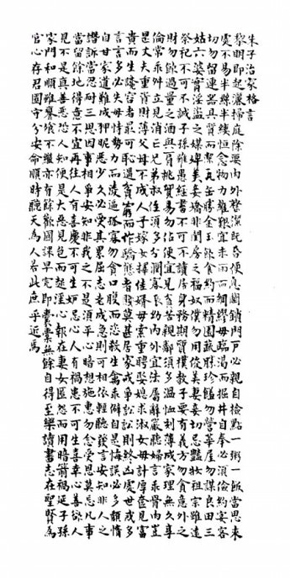 朱子治家格言
黎明即起灑掃庭除要內外整潔既昏便息關鎖門户必親自檢點一粥一飯當思來
處不易半絲半縷恆念物力維艱宜未雨而綢繆毋臨渴而掘井自奉必須儉約宴客
切勿留連器具質而潔瓦缶勝金玉飲食約而精園蔬愈珍饈勿營華屋勿謀良田三
姑六婆實淫盜之媒婢美妾嬌非閨房之福奴僕勿用俊美妻妾切忌艷妝祖宗雖遠
祭祀不可不誠子孫雖愚經書不可不讀居身務期質樸教子要有義方勿貪意外之
財勿飲過量之酒與肩挑貿易勿佔便宜見貧苦親鄰須多溫恤刻薄成家理無久享
倫常乖舛立見消亡兄弟叔侄須多分潤寡長幼內外宜法肅辭嚴聽婦言乖骨肉豈
是丈夫重資財薄父母不成人子嫁女擇佳婿毋索重聘娶媳求淑女毋計厚奩見富
貴而生讒容者最可恥遇貧窮而作驕態者賤莫甚居家戒爭訟訟則終凶處世戒多
言言多必失毋恃勢力而凌逼孤寡勿貪口腹而恣殺生禽乖僻自是悔誤必多頹惰
自甘家道難成狎昵惡少久必受其累屈志老成急則可相依輕聽發言安知非人之
譖訴當忍耐三思因事相爭安知非我之不是須平心暗想施惠勿念受恩莫忘凡事
當留餘地得意不宜再往人有喜慶不可生妒忌心人有禍患不可生喜幸心善欲人
見不是真善惡恐人知便是大惡見色而起淫心報在妻女匿怨而用暗箭禍延子孫
家門和順雖饔飧不繼亦有餘歡國課早完即囊橐無餘自得至樂讀書志在聖賢為
官心存君國守分安命順時聽天為人若此庶乎近焉